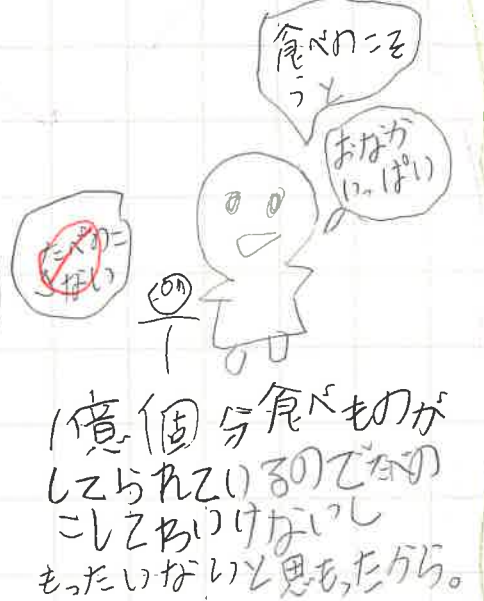 食べのこそ
うと
おなか
いっぱい
たべのこ
さない
1億個分食べものが
してられているのでたべの
こしてわいけないし
もったいないと思もったから。